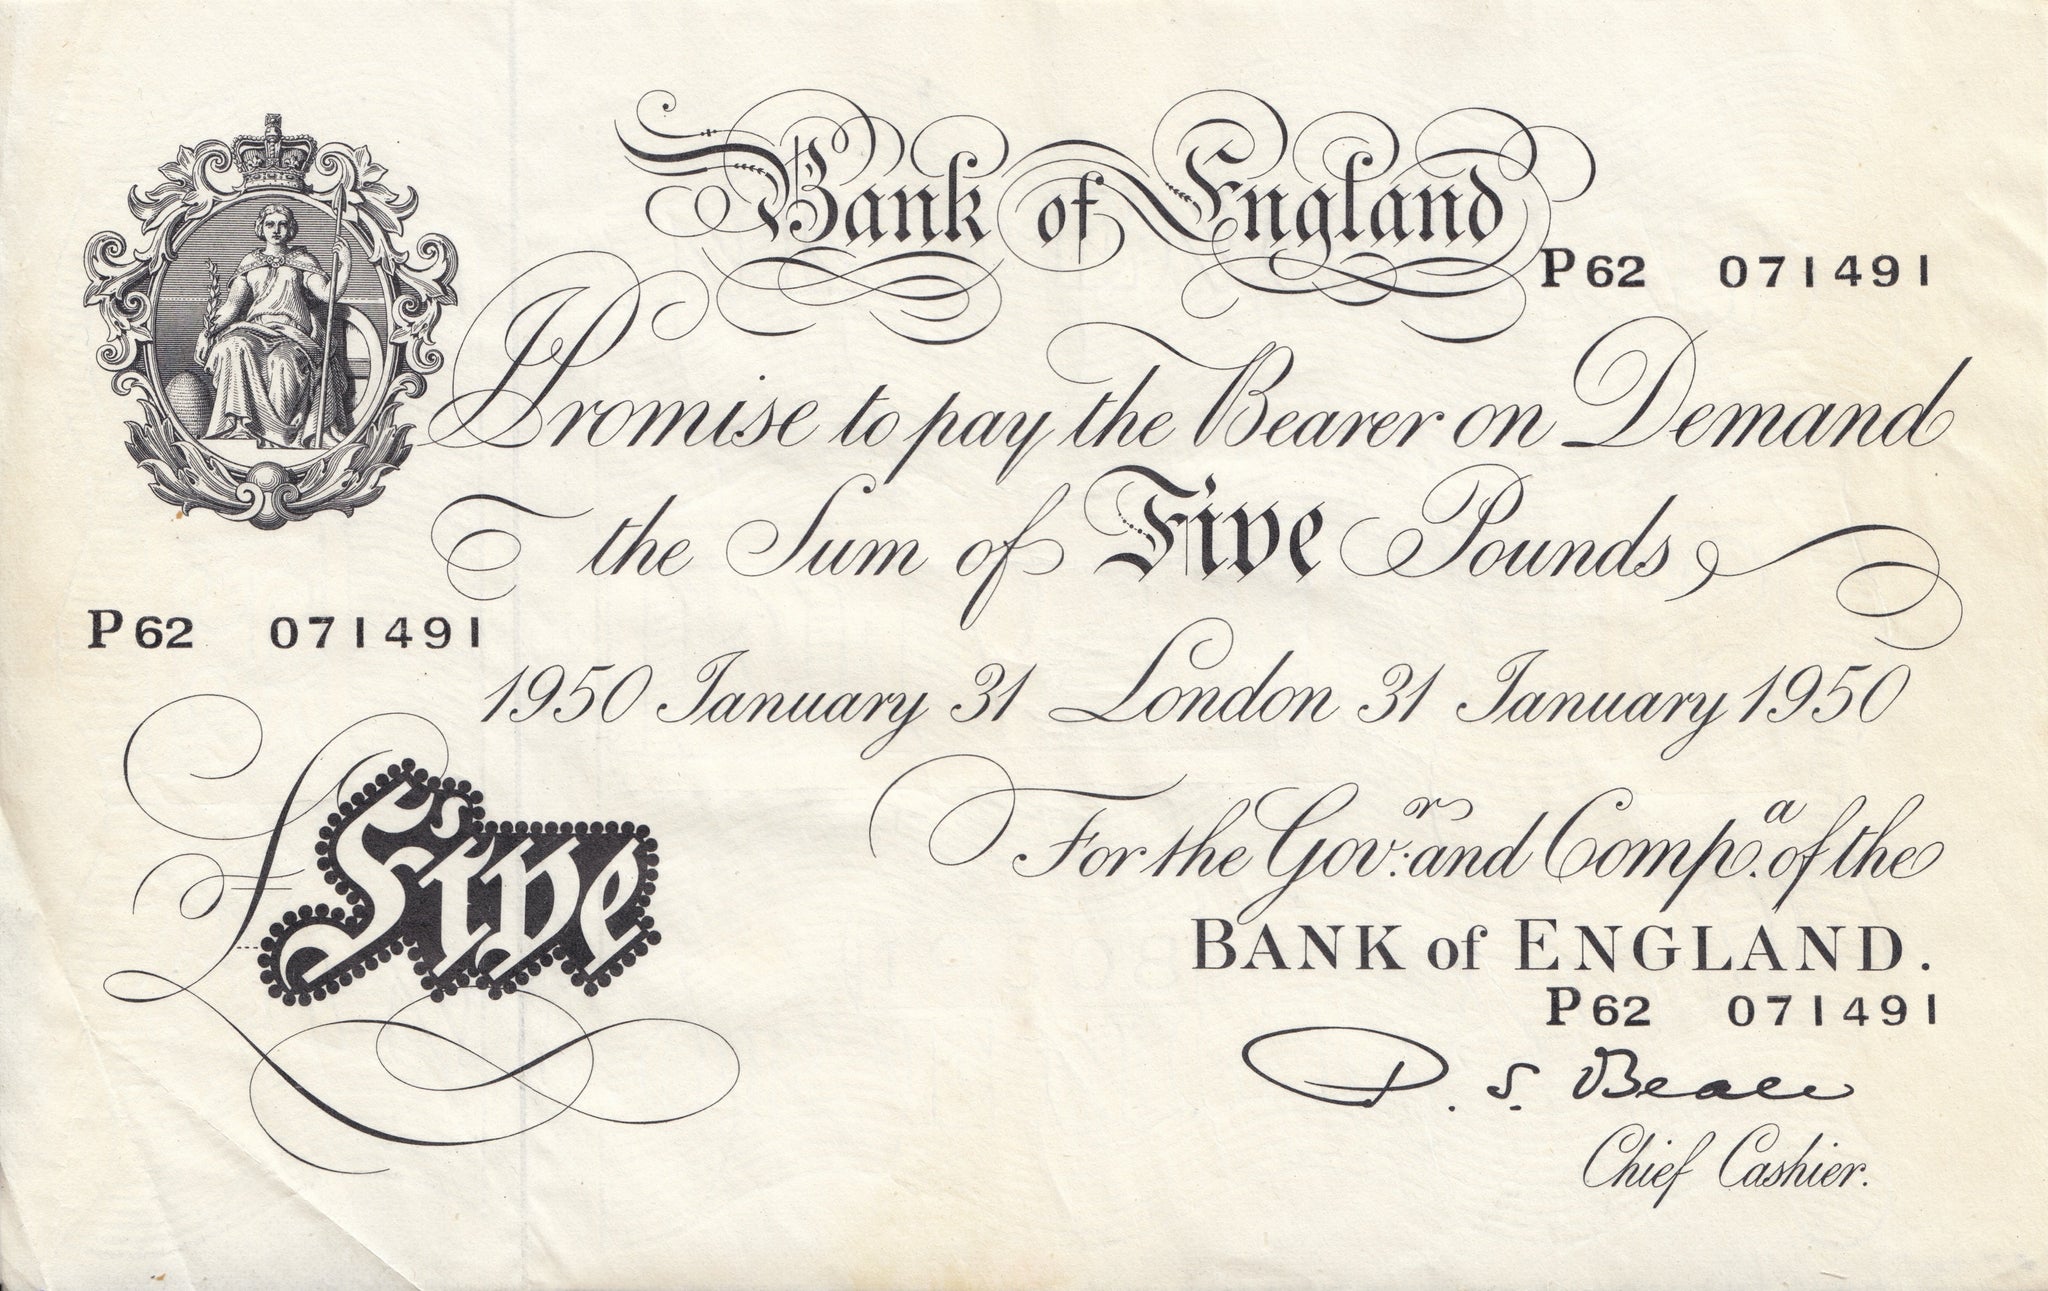 Bank of England
P 62 071491
I Promise to pay the Bearer on Demand
the Sum of Five Pounds
P 62 071491
1950 January 31 London 31 January 1950
£ Five
For the Gov.r and Comp.a of the
BANK of ENGLAND.
P 62 071491
P. S. Beale
Chief Cashier.